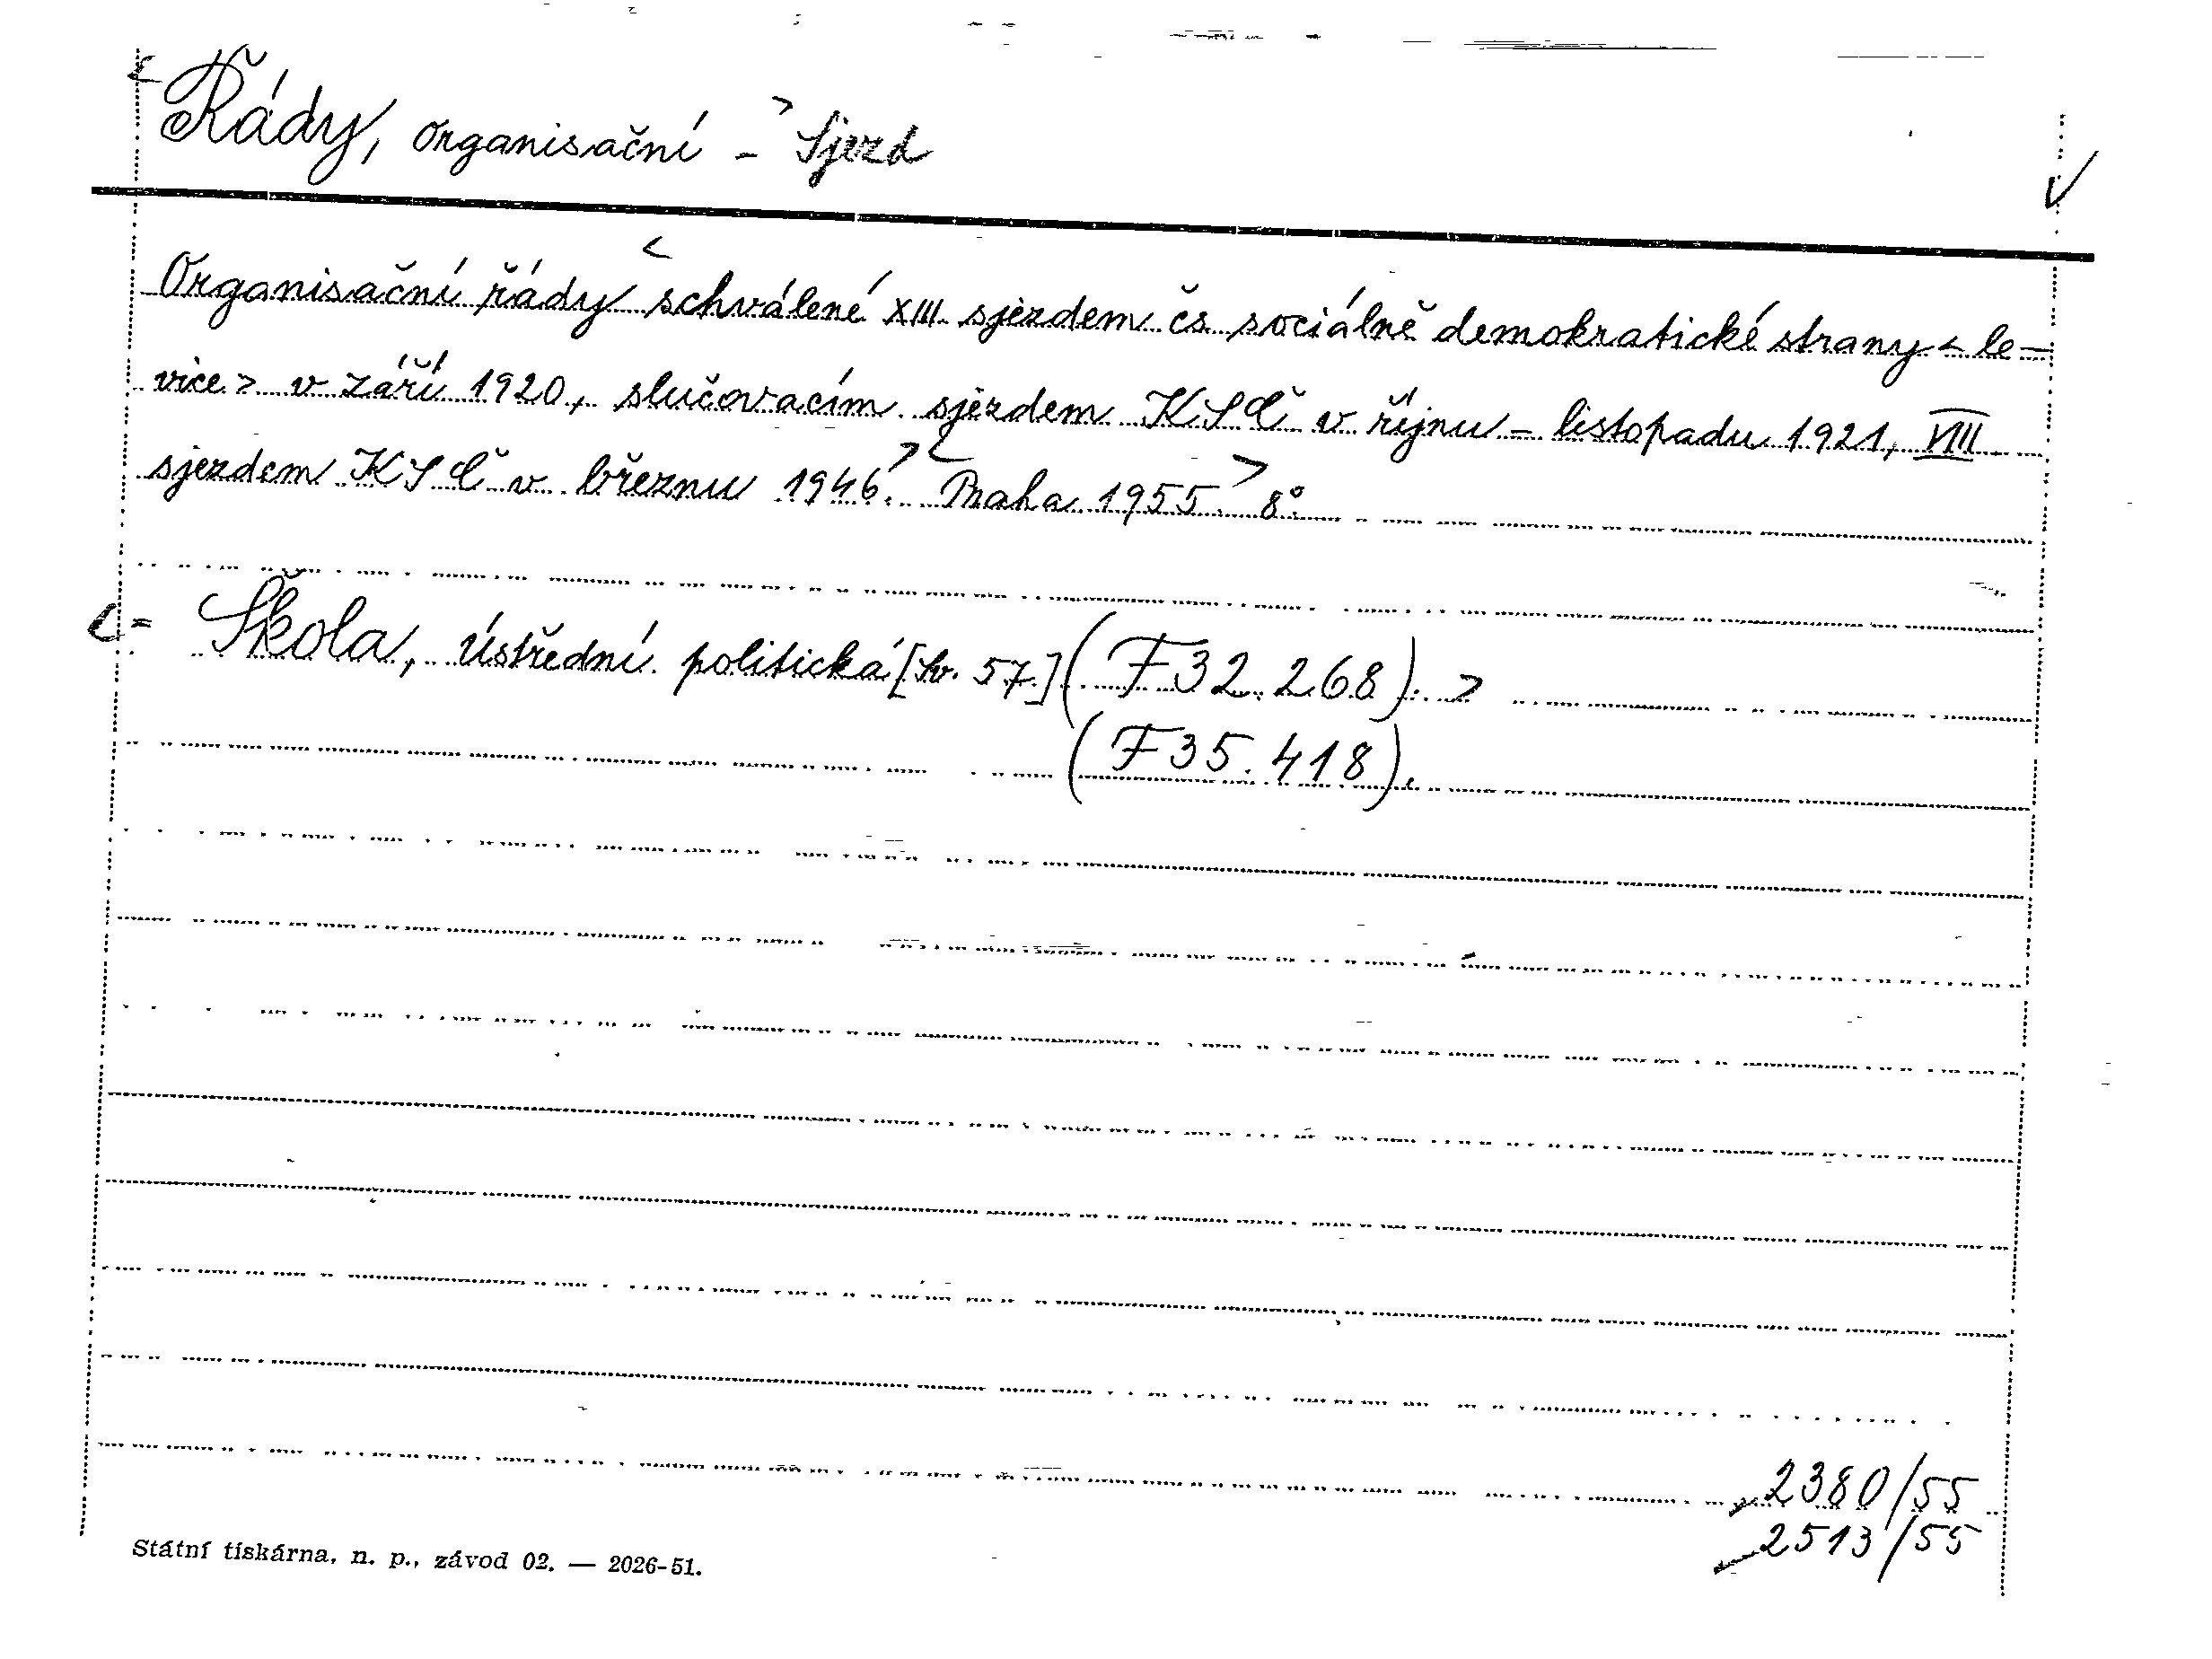 < Řády, organisační - > Sjezd
Organisační řády < schválené XIII. sjezdem čs. sociálně demokratické strany < le-
vice > v září 1920, slučovacím sjezdem KSČ v říjnu - listopadu 1921, VIII.
sjezdem KSČ v březnu 1946. > < Praha 1955. > 8°.
< = Škola, ústřední politická [Sv. 57.] (F 32.268). >
(F 35.418).
2380/55
2513/55
Státní tiskárna, n. p., závod 02. — 2026-51.